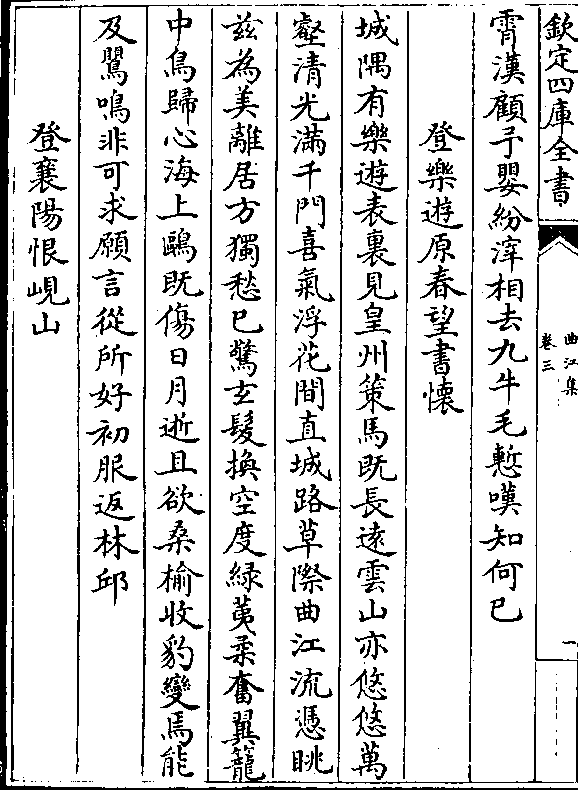 欽定四庫全書
曲江集
卷三
霄漢顧予嬰紛滓相去九牛毛慙嘆知何已
登樂遊原春望書懷
城隅有樂遊表裏見皇州策馬既長遠雲山亦悠悠萬
壑清光滿千門喜氣浮花間直城路草際曲江流憑眺
兹為美離居方獨愁已驚玄髮換空度緑荑柔奮翼籠
中鳥歸心海上鷗既傷日月逝且欲桑榆收豹變焉能
及鸎鳴非可求願言從所好初服返林邱
登襄陽恨峴山